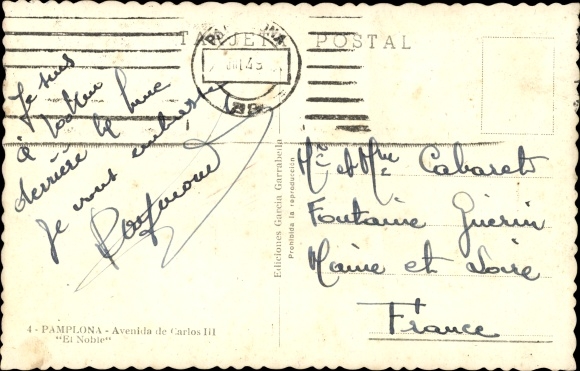 TARJETA POSTAL
Je suis
à
derrière le
Je vous embrasse
Raymond
Mr et Mme Cabaret
Fontaine Guérin
Maine et Loire
France
Ediciones García Garrabella
Prohibida la reproducción
4 - PAMPLONA - Avenida de Carlos III
"El Noble"